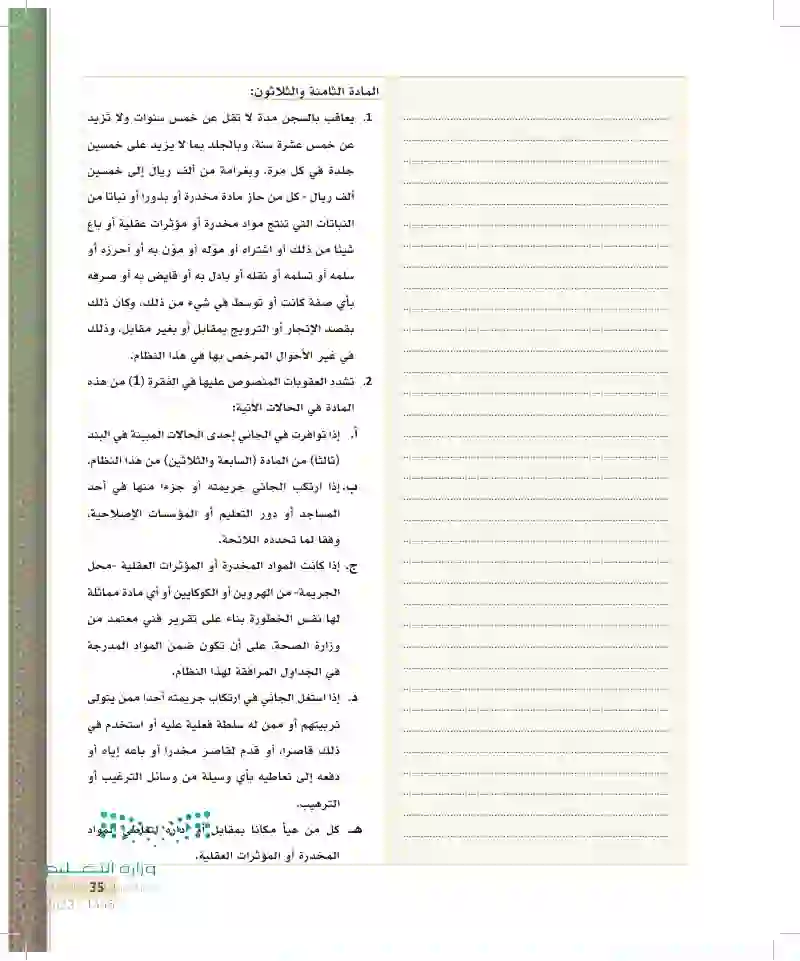 المادة الثامنة والثلاثون:
1. يعاقب بالسجن مدة لا تقل عن خمس سنوات ولا تزيد
عن خمس عشرة سنة، وبالجلد بما لا يزيد على خمسين
جلدة في كل مرة، وبغرامة من ألف ريال إلى خمسين
ألف ريال - كل من حاز مادة مخدرة أو بذورا أو نباتا من
النباتات التي تنتج مواد مخدرة أو مؤثرات عقلية أو باع
شيئا من ذلك أو اشتراه أو موّله أو موّن به أو أحرزه أو
سلمه أو تسلمه أو نقله أو بادل به أو قايض به أو صرفه
بأي صفة كانت أو توسط في شيء من ذلك، وكان ذلك
بقصد الإتجار أو الترويج بمقابل أو بغير مقابل، وذلك
في غير الأحوال المرخص بها في هذا النظام.
2. تشدد العقوبات المنصوص عليها في الفقرة (1) من هذه
المادة في الحالات الآتية:
أ. إذا توافرت في الجاني إحدى الحالات المبينة في البند
(ثالثا) من المادة (السابعة والثلاثين) من هذا النظام.
ب. إذا ارتكب الجاني جريمته أو جزءا منها في أحد
المساجد أو دور التعليم أو المؤسسات الإصلاحية،
وفقا لما تحدده اللائحة.
ج. إذا كانت المواد المخدرة أو المؤثرات العقلية -محل
الجريمة- من الهروين أو الكوكايين أو أي مادة مماثلة
لها نفس الخطورة بناء على تقرير فني معتمد من
وزارة الصحة، على أن تكون ضمن المواد المدرجة
في الجداول المرافقة لهذا النظام.
د. إذا استغل الجاني في إرتكاب جريمته أحدا ممن يتولى
تربيتهم أو ممن له سلطة فعلية عليه أو استخدم في
ذلك قاصرا، أو قدم لقاصر مخدرا أو باعه إياه أو
دفعه إلى تعاطيه بأي وسيلة من وسائل الترغيب أو
الترهيب.
هـ كل من هيأ مكانا بمقابل أو إداره لتعاطي المواد
المخدرة أو المؤثرات العقلية.
وزارة التعليم
35